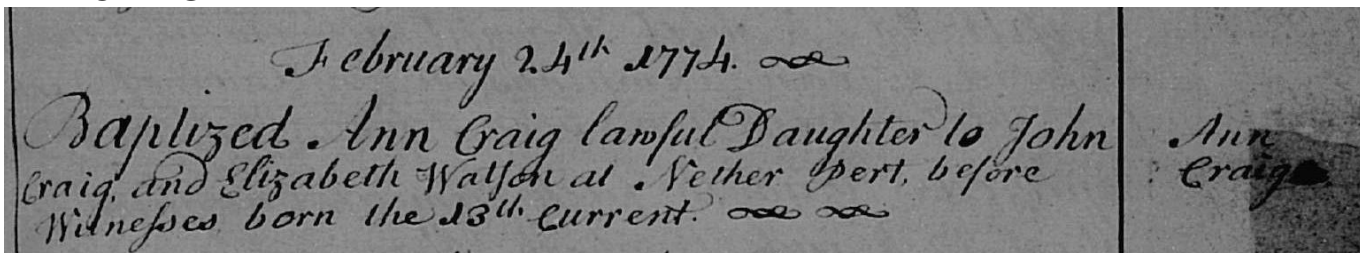 February 24th 1774.
Baptized Ann Craig lawful Daughter to John
Craig, and Elizabeth Watson at Nether Pert, before
Witnesses born the 13th Current.
Ann
Craig